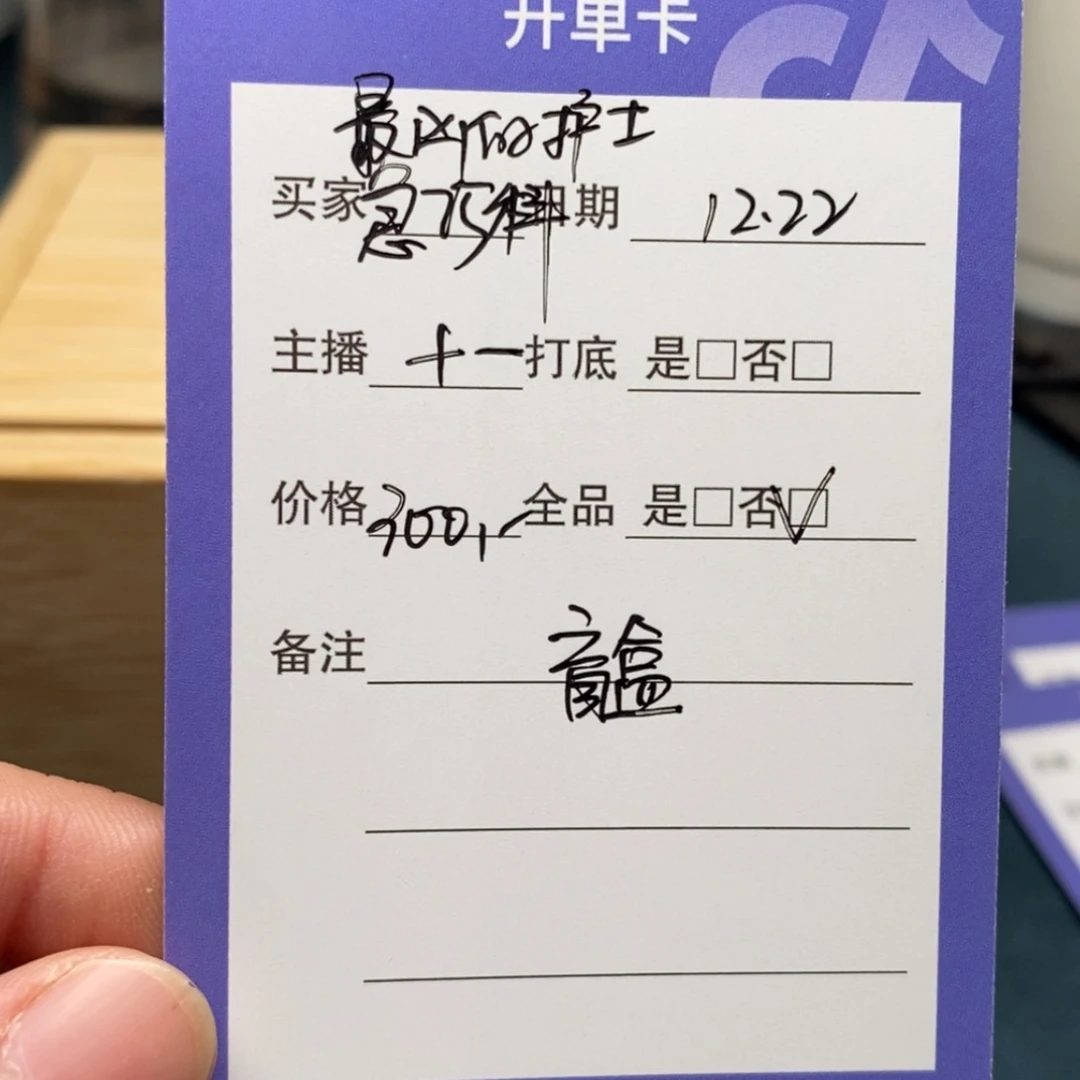 开单卡
最凶的护士
买家 急诊科 日期 12.22
主播 十一 打底 是□否□
价格 300,- 全品 是□否☑
备注 盲盒